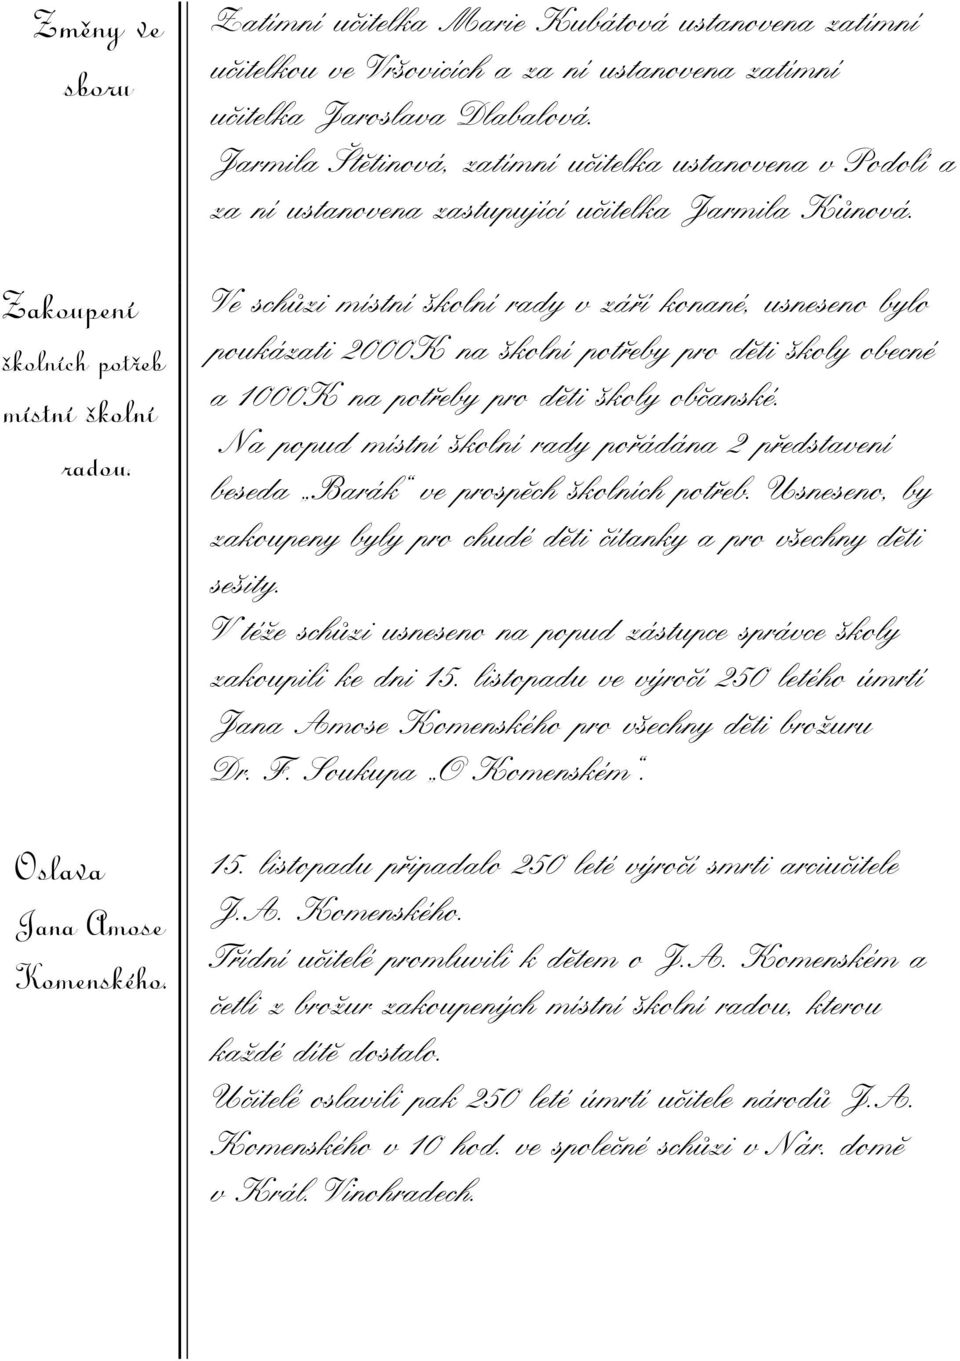 Změny ve
sboru
Zatímní učitelka Marie Kubátová ustanovena zatímní
učitelkou ve Vršovicích a za ní ustanovena zatímní
učitelka Jaroslava Dlabalová.
Jarmila Štětinová, zatímní učitelka ustanovena v Podolí a
za ní ustanovena zastupující učitelka Jarmila Kůnová.
Zakoupení
školních potřeb
místní školní
radou.
Ve schůzi místní školní rady v září konané, usneseno bylo
poukázati 2000K na školní potřeby pro děti školy obecné
a 1000K na potřeby pro děti školy občanské.
Na popud místní školní rady pořádána 2 představení
beseda „Barák“ ve prospěch školních potřeb. Usneseno, by
zakoupeny byly pro chudé děti čítanky a pro všechny děti
sešity.
V téže schůzi usneseno na popud zástupce správce školy
zakoupili ke dni 15. listopadu ve výročí 250 letého úmrtí
Jana Amose Komenského pro všechny děti brožuru
Dr. F. Soukupa „O Komenském“.
Oslava
Jana Amose
Komenského.
15. listopadu připadalo 250 leté výročí smrti arciučitele
J.A. Komenského.
Třídní učitelé promluvili k dětem o J.A. Komenském a
četli z brožur zakoupených místní školní radou, kterou
každé dítě dostalo.
Učitelé oslavili pak 250 leté úmrtí učitele národů J.A.
Komenského v 10 hod. ve společné schůzi v Nár. domě
v Král. Vinohradech.